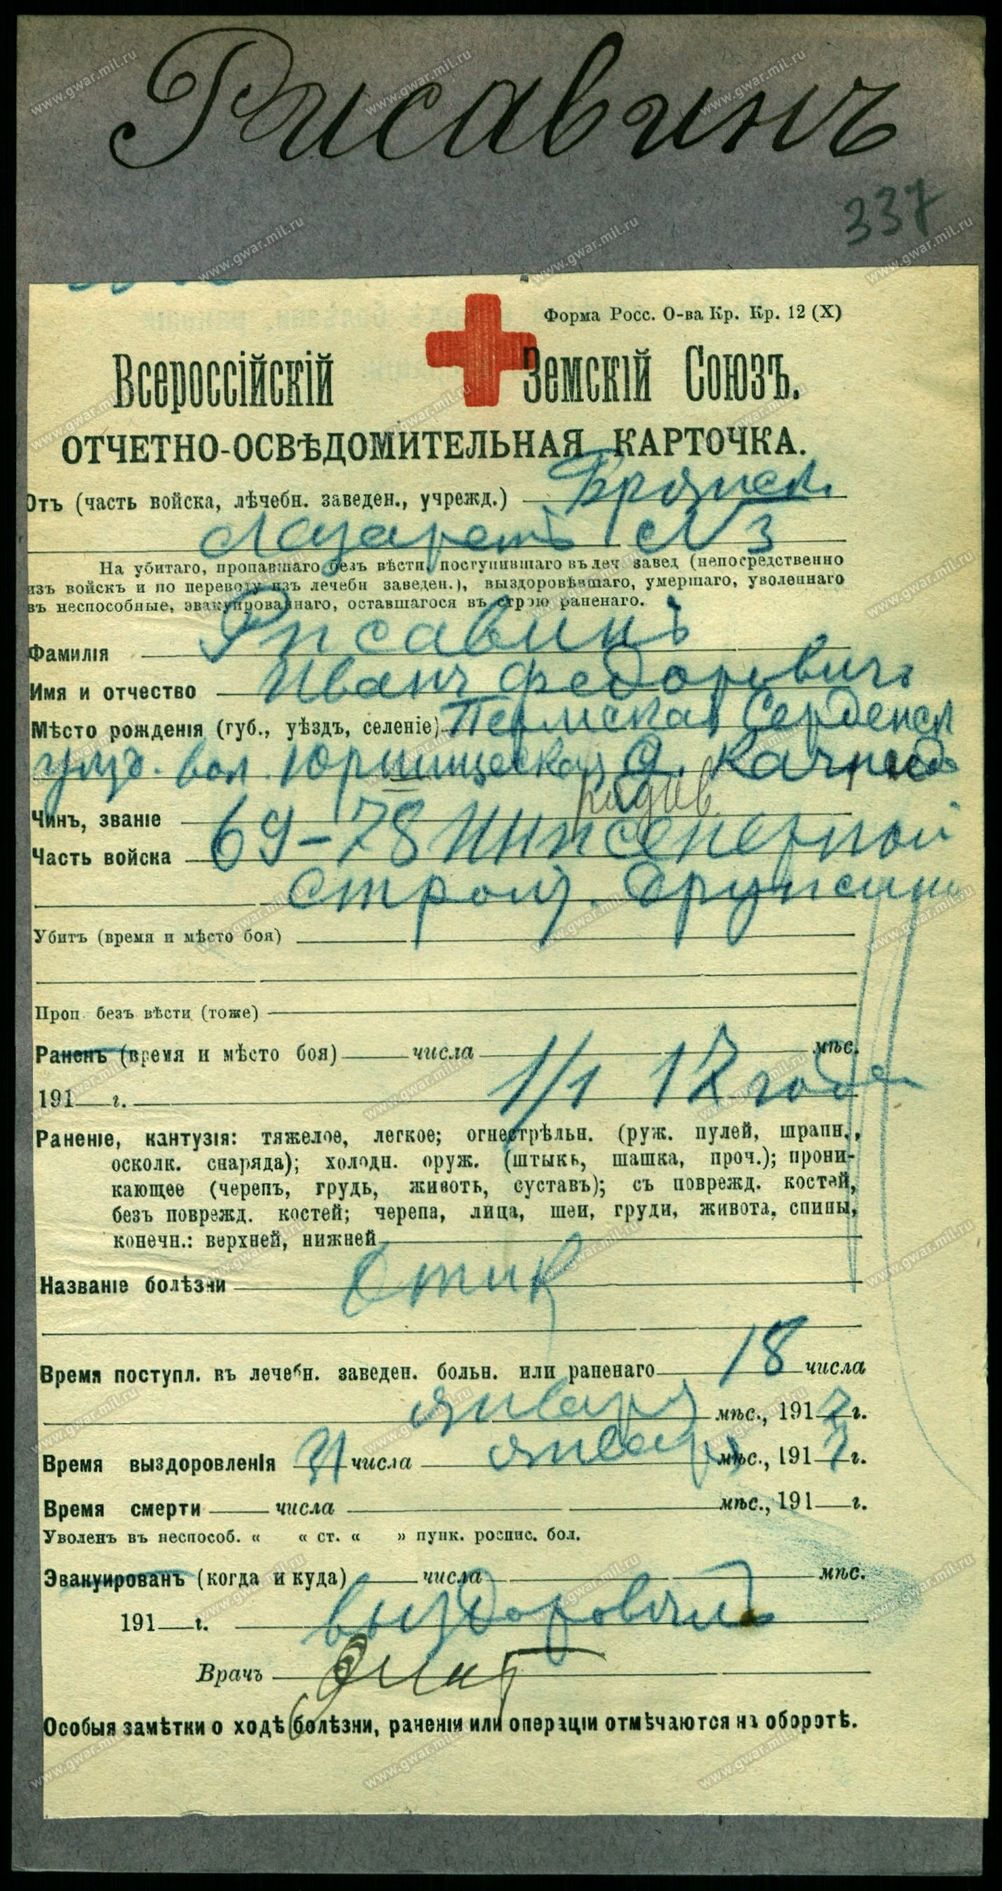 Рисавинъ
337
Форма Росс. О-ва Кр. Кр. 12 (X)
Всероссійскій Земскій Союзъ.
ОТЧЕТНО-ОСВѢДОМИТЕЛЬНАЯ КАРТОЧКА.
Отъ (часть войска, лѣчебн. заведен., учрежд.)
Лазаретъ №3
На убитаго, пропавшаго безъ вѣсти, поступившаго въ леч завед (непосредственно
изъ войскъ и по переводу изъ лечебн заведен.), выздоровѣвшаго, умершаго, уволеннаго
въ неспособные, эвакуированнаго, оставшагося въ строю раненаго.
Фамилія Рисавинъ
Имя и отчество Иванъ Федоровичъ
Мѣсто рождения (губ., уѣздъ, селеніе) Пермская
вол.
Чинъ, званіе рядов
Часть войска 69-78 Инженерной
строит. дружины
Убитъ (время и мѣсто боя)
Проп. безъ вѣсти (тоже)
Раненъ (время и мѣсто боя) числа мѣс.
191 г. 1/1 17 года
Раненіе, кантузія: тяжелое, легкое; огнестрѣльн. (руж. пулей, шрапн.,
осколк. снаряда); холодн. оруж. (штыкъ, шашка, проч.); прони-
кающее (черепъ, грудь, животъ, суставъ); съ поврежд. костей,
безъ поврежд. костей; черепа, лица, шеи, груди, живота, спины,
конечн.: верхней, нижней
Названіе болѣзни
Время поступл. въ лечебн. заведен. больн. или раненаго 18 числа
января мѣс., 1917 г.
Время выздоровленія 31 числа января мѣс., 1917 г.
Время смерти числа мѣс., 191 г.
Уволенъ въ неспособ. « « ст. « » пунк. роспис. бол.
Эвакуированъ (когда и куда) числа мѣс.
191 г. выздоровѣлъ
Врачъ
Особыя замѣтки о ходѣ болѣзни, раненіи или операціи отмѣчаются на оборотѣ.
www.gwar.mil.ru